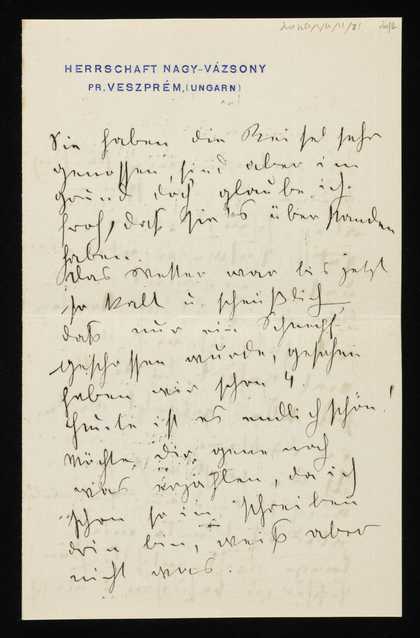 HERRSCHAFT NAGY-VÁZSONY
PR. VESZPRÉM, (UNGARN)
Sie haben die Reise sehr
genossen, sind aber im
grund doch glaube ich
froh, daß sie's überstanden
haben.
Das Wetter war bis jetzt
so kalt u. scheußlich,
daß nur ein
geschossen wurde, gesehen
haben wir schon 4.
Heute ist es endlich schön!
Möchte Dir gerne noch
was erzählen, da ich
schon so im schreiben
drin bin, weiß aber
nicht was.